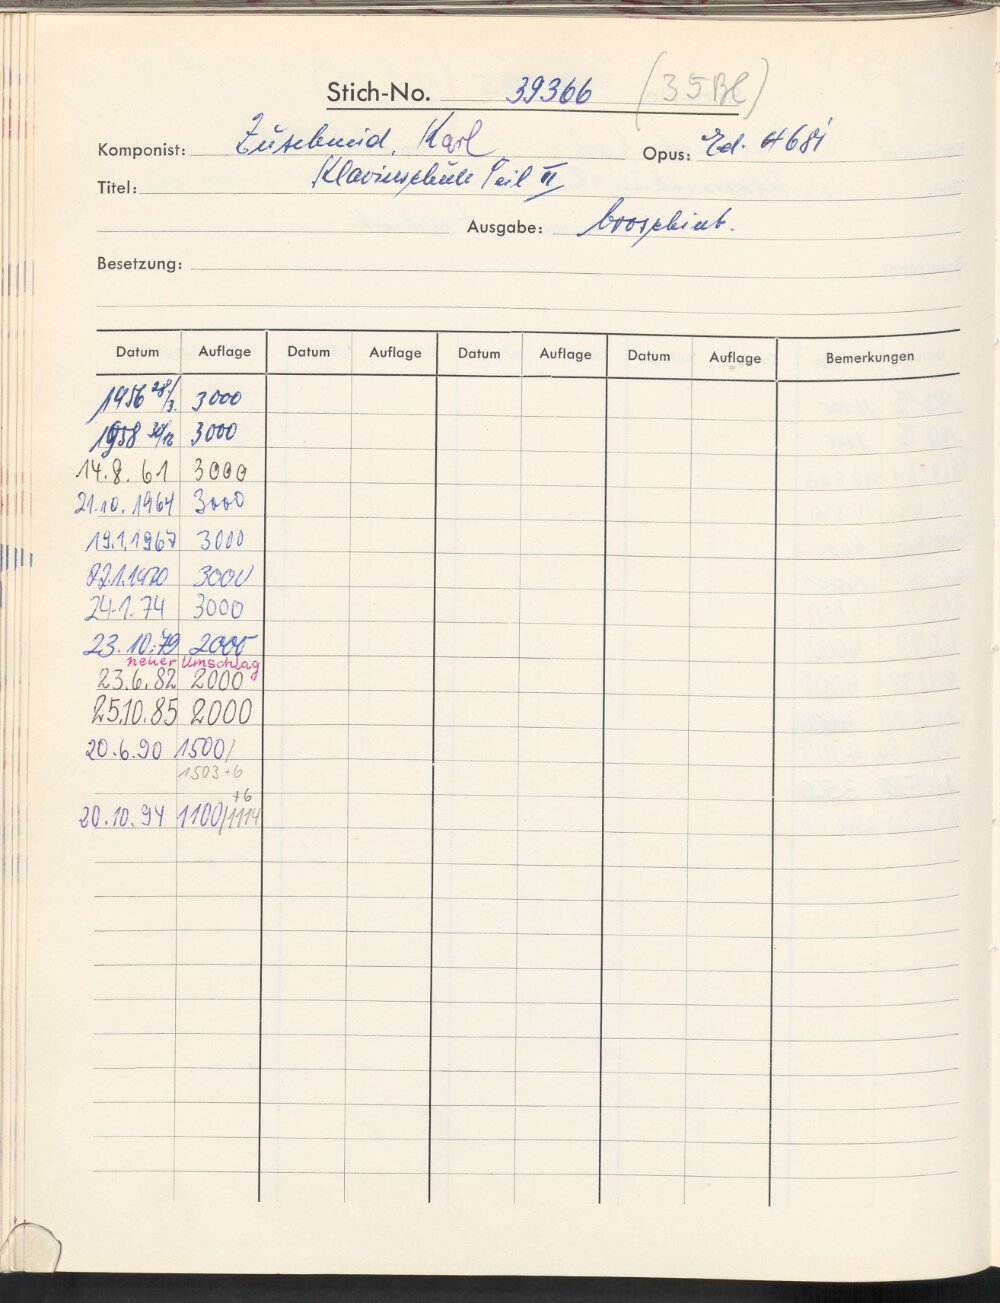 Stich-No. 39366 (35 Bl)
Komponist: Zuschneid, Karl Opus: Ed. 4681
Titel: Klavierschule Teil II
Ausgabe: broschiert.
Besetzung:
Datum Auflage Datum Auflage Datum Auflage Datum Auflage Bemerkungen
1956 28/3. 3000
1958 30/12 3000
14.8.61 3000
21.10.1964 3000
19.1.1967 3000
22.1.1970 3000
24.1.74 3000
23.10.79 2000
neuer Umschlag
23.6.82 2000
25.10.85 2000
20.6.90 1500/
1503+6
+6
20.10.94 1100/1114